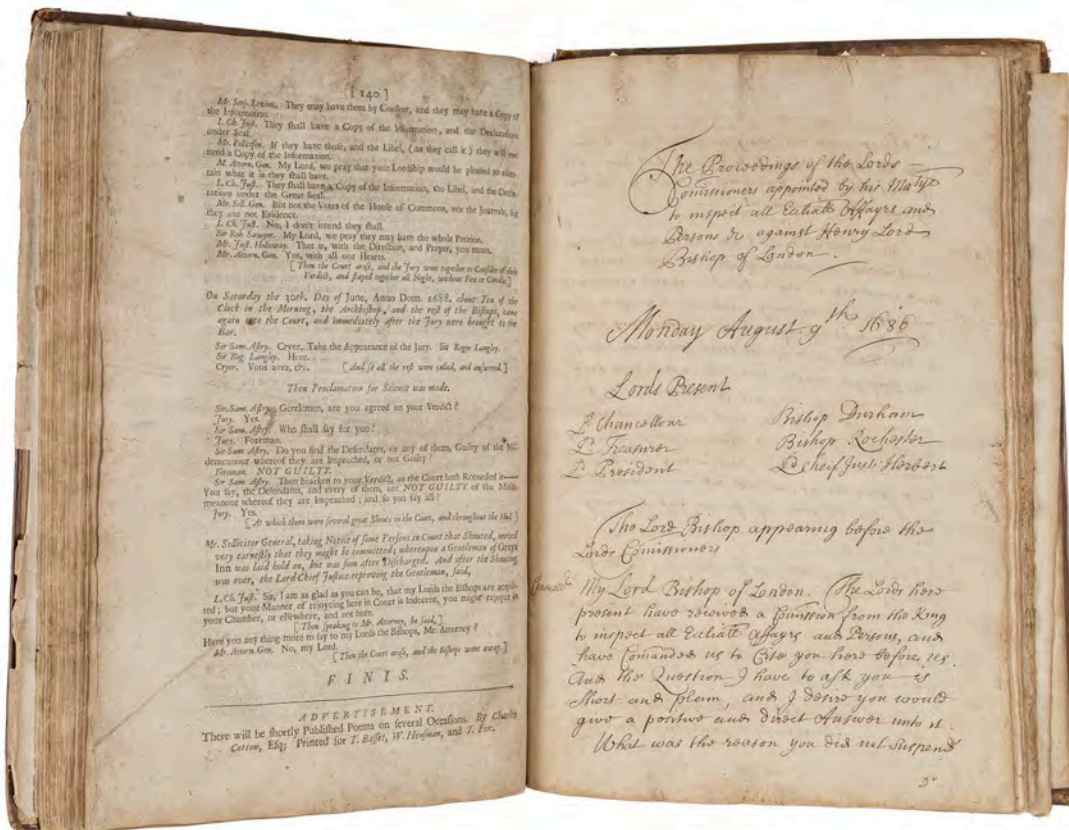 [ 140 ]
Mr. Serj. Levinz. They may have them by Consent, and they may have a Copy of
the Information.
L. Ch. Just. They shall have a Copy of the Information, and the Declarations
under Seal.
Mr. Pollexfen. If they have those, and the Libel, (as they call it) they will not
need a Copy of the Information.
M. Attorn. Gen. My Lord, we pray that your Lordship would be pleased to ascer-
tain what it is they shall have.
L. Ch. Just. They shall have a Copy of the Information, the Libel, and the Decla-
rations under the Great Seal.
Mr. Sol. Gen. But not the Votes of the House of Commons, nor the Journals, for
they are not Evidence.
L. Ch. Just. No, I don't intend they shall.
Sir Rob. Sawyer. My Lord, we pray they may have the whole Petition.
Mr. Just. Holloway. That is, with the Direction, and Prayer, you mean.
Mr. Attorn. Gen. Yes, with all our Hearts.
[ Then the Court arose, and the Jury went together to Consider of their
Verdict, and stayed together all Night, without Fire or Candle. ]
On Saturday the 30th. Day of June, Anno Dom. 1688. about Ten of the
Clock in the Morning, the Archbishop, and the rest of the Bishops, came
again into the Court, and immediately after the Jury were brought to the
Bar.
Sir Sam. Astry. Cryer, Take the Appearance of the Jury. Sir Roger Langley.
Sir Rog. Langley. Here.
Cryer. Vous avez, &c. [ And so all the rest were called, and answered. ]
Then Proclamation for Silence was made.
Sir Sam. Astry. Gentlemen, are you agreed on your Verdict?
Jury. Yes.
Sir Sam. Astry. Who shall say for you?
Jury. Foreman.
Sir Sam. Astry. Do you find the Defendants, or any of them, Guilty of the Mis-
demeanour whereof they are Impeached, or not Guilty?
Foreman. NOT GUILTY.
Sir Sam. Astry. Then hearken to your Verdict, as the Court hath Recorded it—
You say, the Defendants, and every of them, are NOT GUILTY of the Misde-
meanour whereof they are Impeached; and so you say all?
Jury. Yes.
[ At which there were several great Shouts in the Court, and throughout the Hall. ]
Mr. Sollicitor General, taking Notice of some Persons in Court that Shouted, moved
very earnestly that they might be committed; whereupon a Gentleman of Grays
Inn was laid hold on, but was soon after Discharged. And after the Shouting
was over, the Lord Chief Justice reproving the Gentleman, said,
L. Ch. Just. Sir, I am as glad as you can be, that my Lords the Bishops are acquit-
ted; but your Manner of rejoycing here in Court is Indecent, you might rejoyce in
your Chamber, or elsewhere, and not here.
[ Then speaking to Mr. Attorney, he said, ]
Have you any thing more to say to my Lords the Bishops, Mr. Attorney?
Mr. Attorn. Gen. No, my Lord.
[ Then the Court arose, and the Bishops went away. ]
FINIS.
ADVERTISEMENT.
There will be shortly Published Poems on several Occasions. By Charles
Cotton, Esq; Printed for T. Basset, W. Hensman, and T. Fox.
The Proceedings of the Lords
Comissioners appointed by his Matye
to inspect all Eccliatt Affayrs and
Persons &c against Henry Lord
Bishop of London.
Monday August 9th. 1686
Lords Present
Ld Chancellour Bishop Durham
Ld Treasurer Bishop Rochester
Ld President Ld Cheif Just: Herbert
The Lord Bishop appearing before the
Lords Comissioners
My Lord Bishop of London. The Lords here
present have received a Comission from the King
to inspect all Eccliatt affayrs and Persons, and
have Comanded us to Cite you here before us.
And the Question I have to ask you is
short and plain, and I desire you would
give a positive and direct Answer unto it.
What was the reason you did not Suspend
Dr